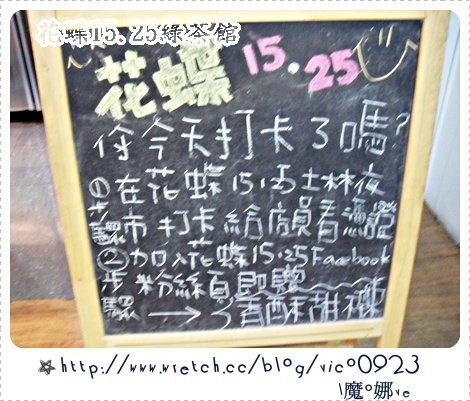 花蝶15.25綠茶館
花蝶 15.25
你今天打卡了嗎?
①在花蝶15.25士林夜
步驟市打卡給顔看憑證
②加入花蝶15.25Facebook
步驟粉絲頁即贈
→ 香酥甜
http://www.wretch.cc/blog/vico0923
魔
娜